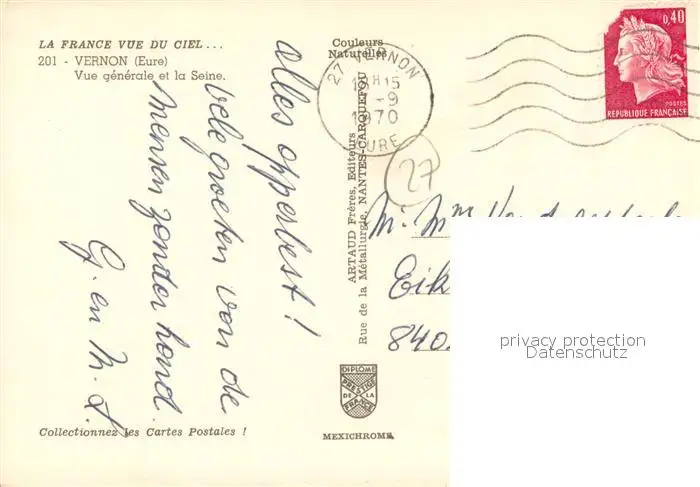 LA FRANCE VUE DU CIEL...
201 - VERNON (Eure)
Vue générale et la Seine.
alles opperbest!
vele groeten van de
mensen zonder hond.
G. en M. S.
Collectionnez les Cartes Postales !
Couleurs
Naturelles
ARTAUD Frères, Editeurs
Rue de la Métallurgie, NANTES-CARQUEFOU
DIPLOME
PRESTIGE
DE LA
FRANCE
MEXICHROME
27 VERNON
19H15
-9
1970
EURE
27
0,40
POSTES
REPUBLIQUE FRANÇAISE
M. Mme
Eik
840
privacy protection
Datenschutz